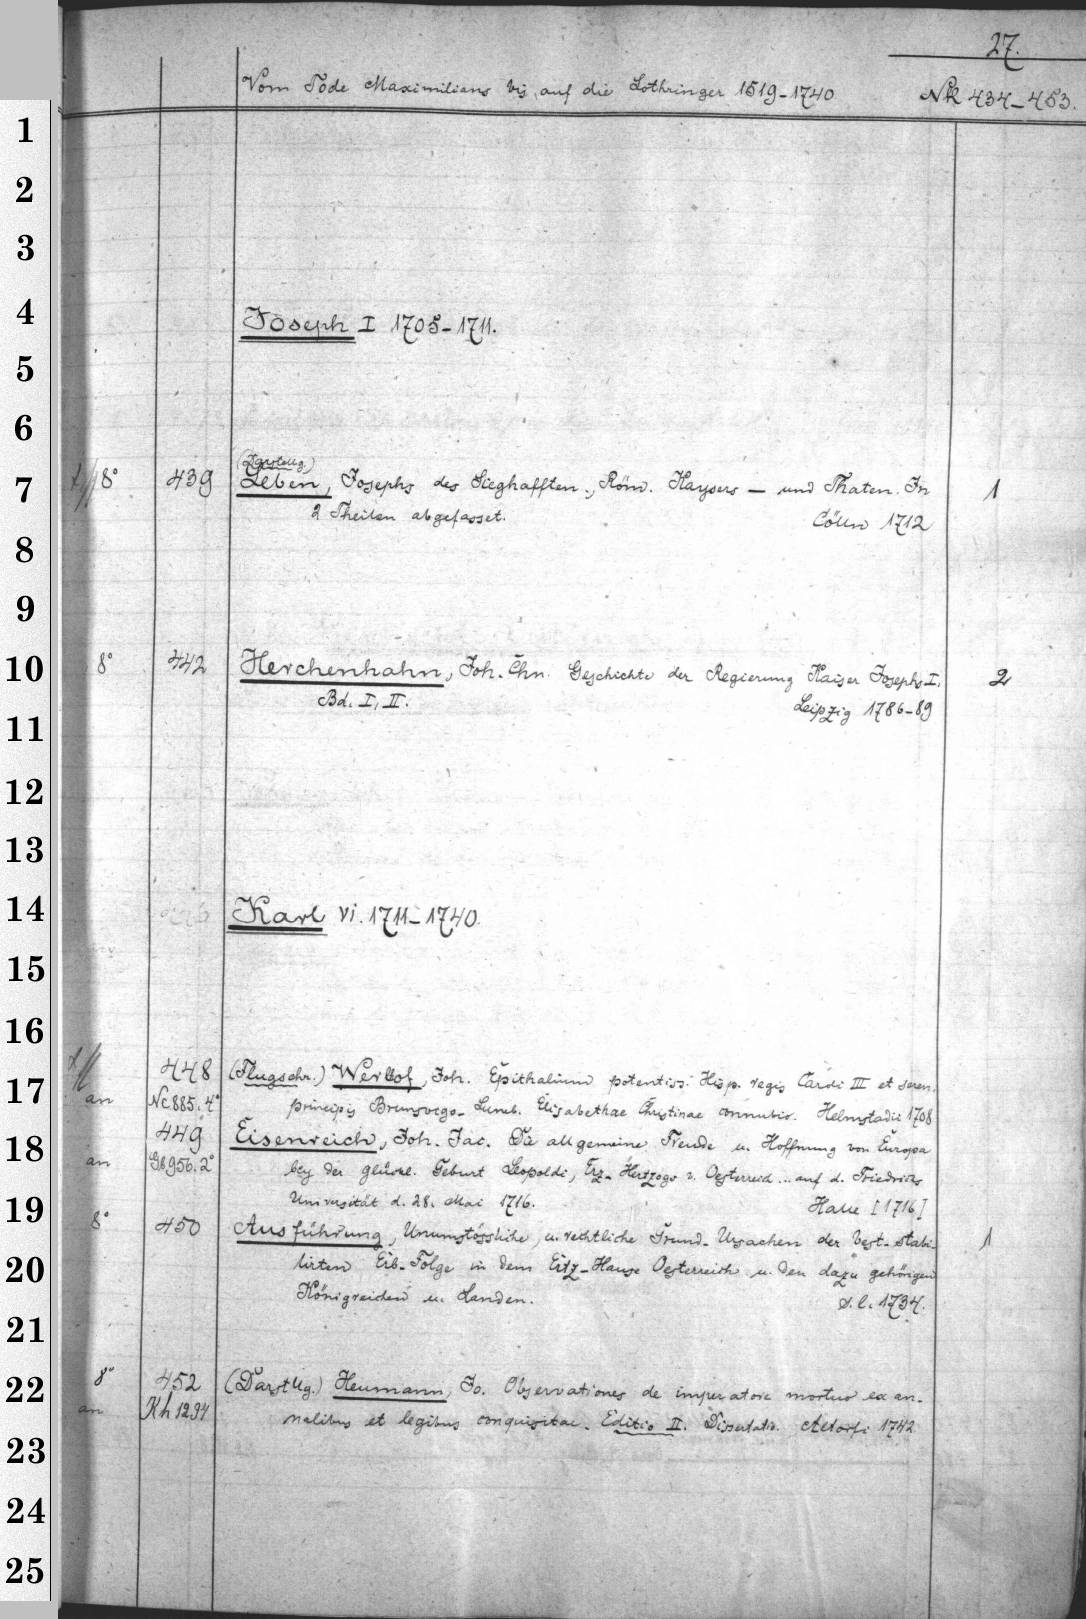 27.
Vom Tode Maximilians bis auf die Lothringer 1519-1740 Nk 434-453.
1
2
3
4 Joseph I 1705-1711.
5
6
(Darstellg.)
7 8° 439 Leben, Josephs des Sieghafften, Röm. Kaysers — und Thaten. In 1
2 Theilen abgefasset. Cölln 1712
8
9
10 8° 442 Herchenhahn, Joh. Chn. Geschichte der Regierung Kaiser Josephs I. 2
Bd. I, II. Leipzig 1786-89
11
12
13
14 Karl VI. 1711-1740.
15
16
448 (Flugschr.) Werlhof, Joh. Epithalium potentiss. Hisp. regis Caroli III et seren.
17 an Nc 885. 4° principis Brunsvego-Luneb. Elisabethae Christinae connubio. Helmstadii 1708
18 449 Eisenreich, Joh. Jac. Die allgemeine Freude u. Hoffnung von Europa
an Gb 956. 2° bey der glückl. Geburt Leopoldi, Erz-Hertzogs v. Oesterreich ... auf d. Friedrichs
19 Universität d. 28. Mai 1716. Halle [1716]
8° 450 Ausführung, Unumstössliche, u. rechtliche Grund-Ursachen der vest-stabi- 1
20 lirten Erb-Folge in dem Ertz-Hause Oesterreich u. den dazu gehörigen
Königreichen u. Landen. s. l. 1734.
21
22 8° 452 (Darstllg.) Heumann, Jo. Observationes de imperatore mortuo ex an-
an Kh 1294 nalibus et legibus conquisitae. Editio II. Dissertatio. Altorfi 1742
23
24
25